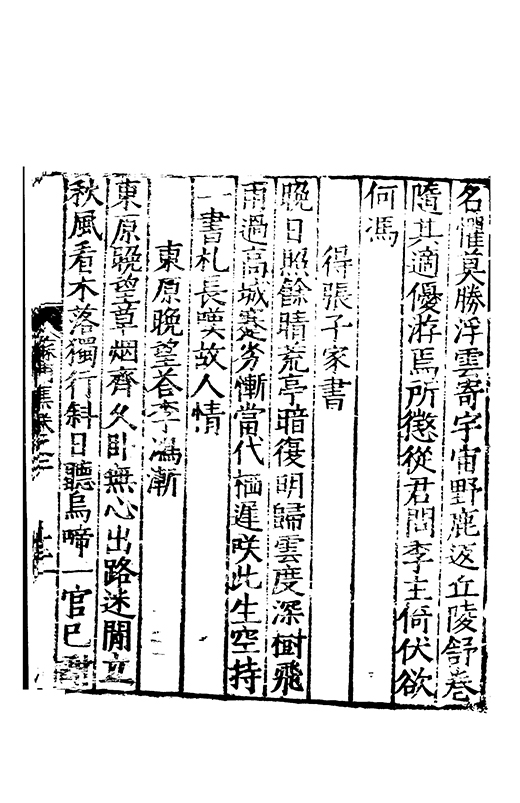 名懼莫勝浮雲寄宇宙野鹿返丘陵舒卷
隨其適優游焉所懲從君問李主倚伏欲
何馮
得張子家書
晚日照餘晴荒亭暗復明歸雲度深樹飛
雨過高城蹇劣慚當代棲遲咲此生空持
一書札長嘆故人情
東原晚望荅李馮漸
東原晚望草烟齊久卧無心出路迷閒立
秋風看木落獨行斜日聽烏啼一官已
蘇門集卷之二